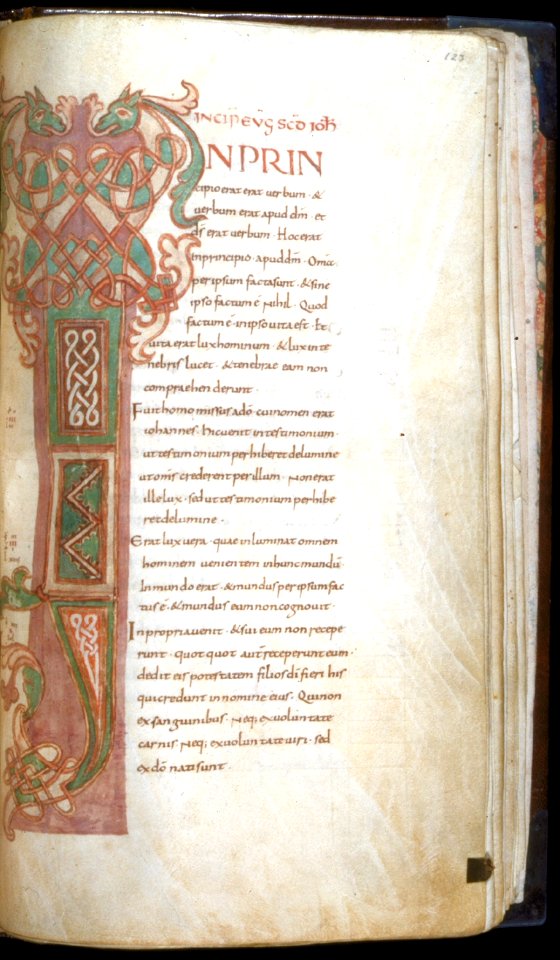 123
INCIP EVG SCD IOH
IN PRIN
cipio erat erat verbum · &
verbum erat apud dm · et
ds erat verbum · Hoc erat
in principio · apud dm · Omia
per ipsum facta sunt · & sine
ipso factum ē Nihil · Quod
factum ē · in ipso vita est · Et
vita erat lux hominum · & lux in te
nebris lucet · & tenebrae eam non
compraehenderunt ·
Fuit homo missus a dō · cui nomen erat
iohannes · hic venit in testimonium ·
ut testimonium perhiberet de lumine
ut omis crederent per illum · Non erat
ille lux · sed ut testimonium perhibe
ret de lumine ·
Erat lux vera · quae inluminat omnem
hominem venientem in hunc mundū
In mundo erat · & mundus per ipsum fac
tus ē · & mundus eum non cognovit ·
In propria venit · & sui eum non recepe
runt · quotquot aut receperunt eum ·
dedit eis potestatem filios dī fieri his
qui credunt in nomine eius · Qui non
ex sanguinibus · Neq; ex voluntate
carnis Neq; ex voluntate viri · sed
ex dō nati sunt ·